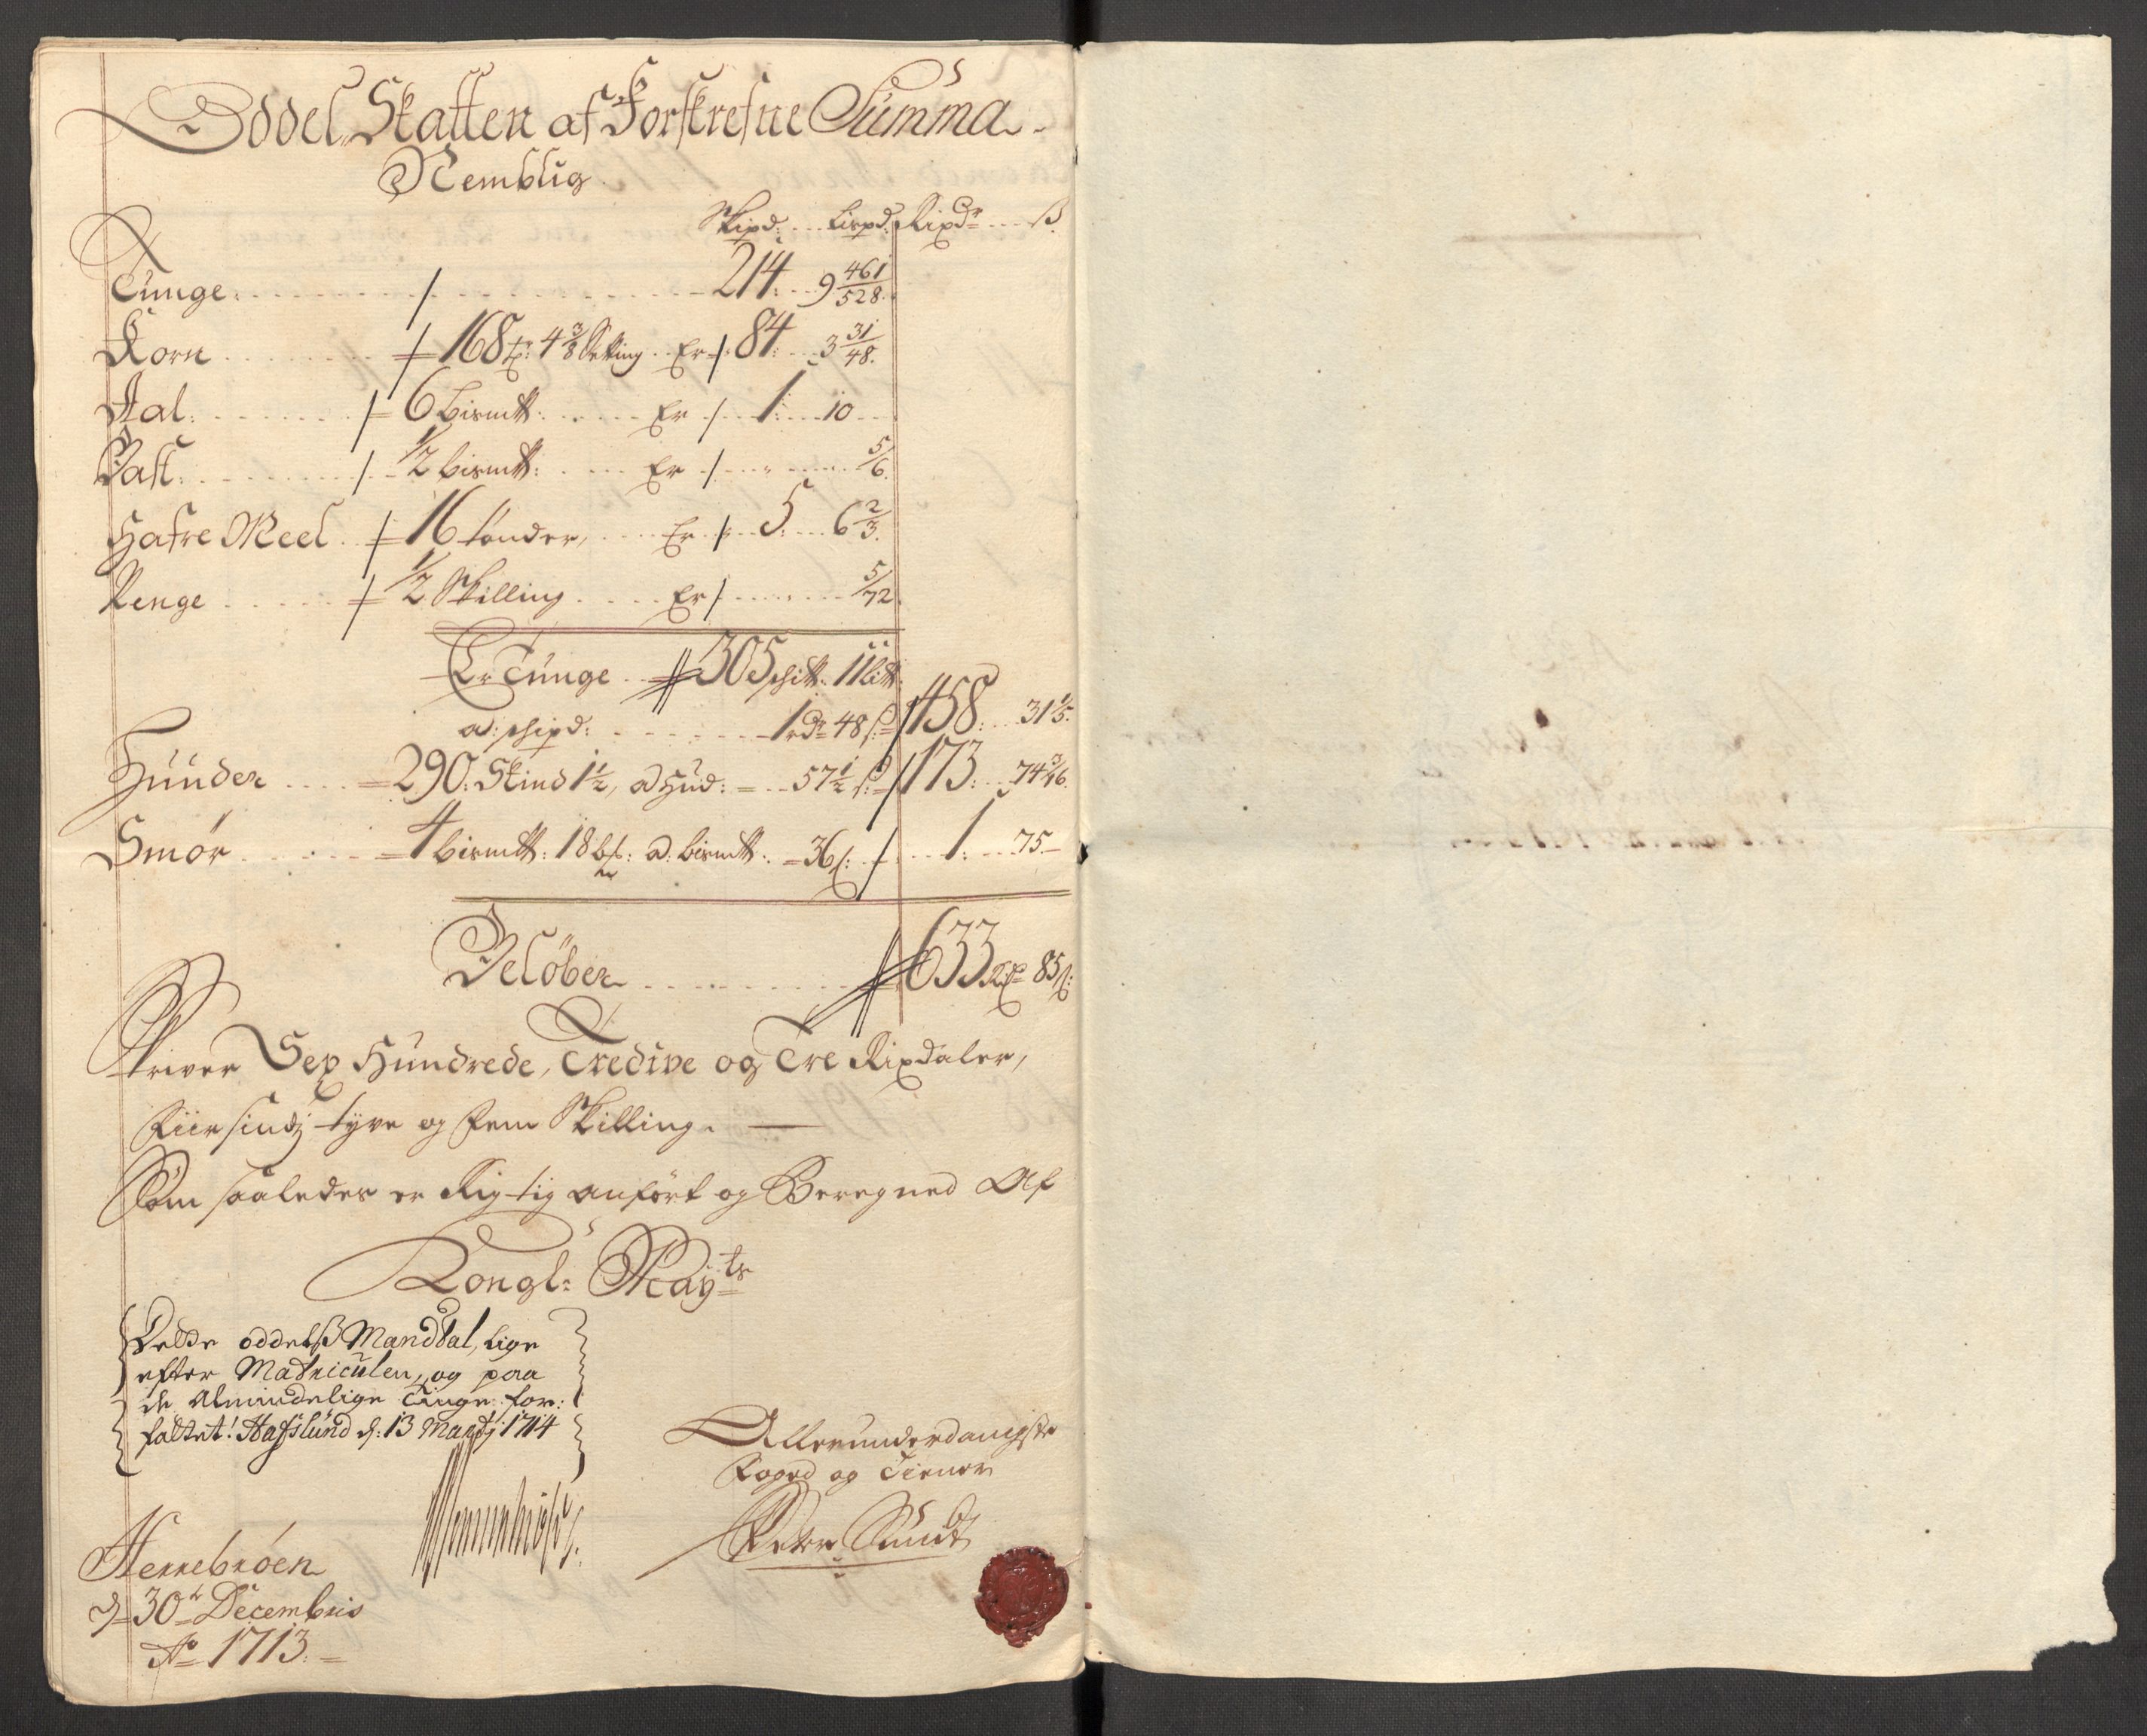 Oddel Skatten af Forskrefne Summa
Nemblig.
Skipd: Lispd: Rixdr ß.
Tunge: 214: 9 461/528.
Korn 168 tr: 4 3/8 Setting Er 84: 3 31/48.
Aal: 6 bismtt: Er 1: 10
Bast: 1/2 bismtt: Er 5/6.
Hafre Meel 16 tønder, Er 5: 6 2/3.
Penge 1/2 Skilling Er 5/72
Er Tunge 305 schtt: 11 litt
a: schipd: 1 rdr 48 ß 458: 31 1/5.
Huuder 290: Skind 1 1/2, a Hud: 57 1/2 ß 173: 74 3/16.
Smør 4 bismtt: 18 bß: a: bismtt: 36 ß: 1: 75
Beløber 633 Rdr 85 ß:
Skriver Sex Hundrede, Tredive og Tre Rixdaler,
Fiirsinds tyve og fem Skilling.
Som saaledes er Rigtig anført og Beregned Af
Kongl: Mayts
Dette oddelß Mandtal, lige
efter Matriculen, og paa
de Almindelige Tinge for:
fattet! Hafslund d: 13 Martj 1714
Allerunderdanigste
Foged og Tiener
Peter Sundt
Hennebrøen
d 30te Decembris
Ao 1713.